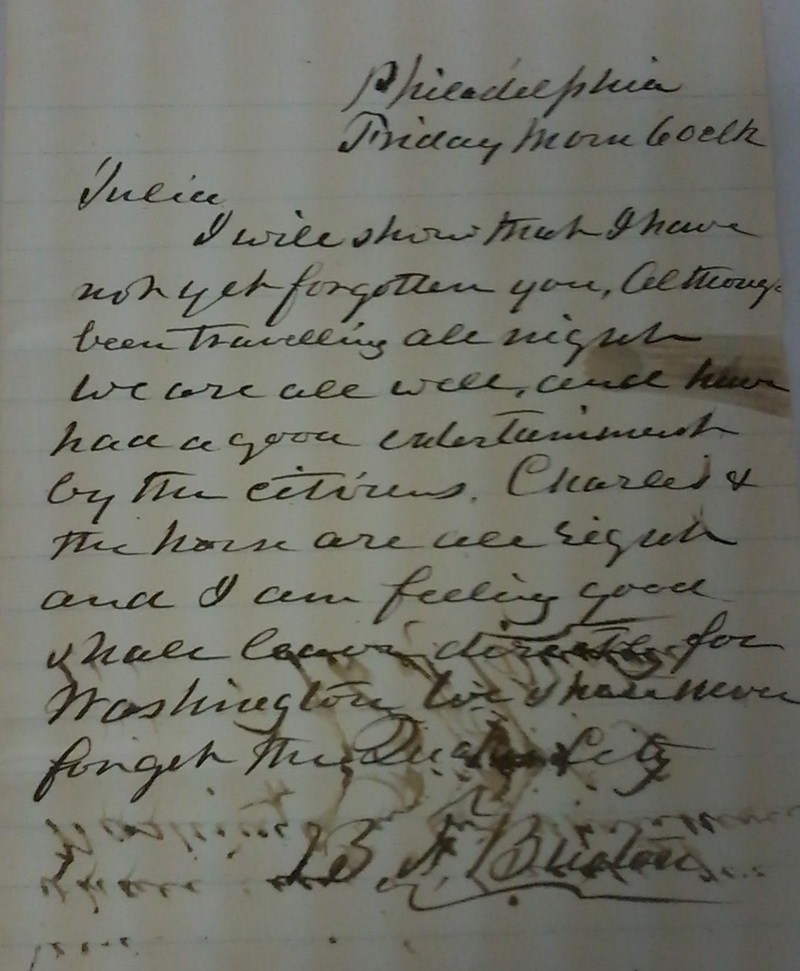 Philadelphia
Friday Morn 6 oclk
Julia
I will show that I have
not yet forgotten you, Although
been travelling all night
We are all well, and have
had a good entertainment
by the citizens. Charles &
the horse are all right
and I am feeling good
shall leave directly for
Washington We shall never
forget the Quaker City
B. F.